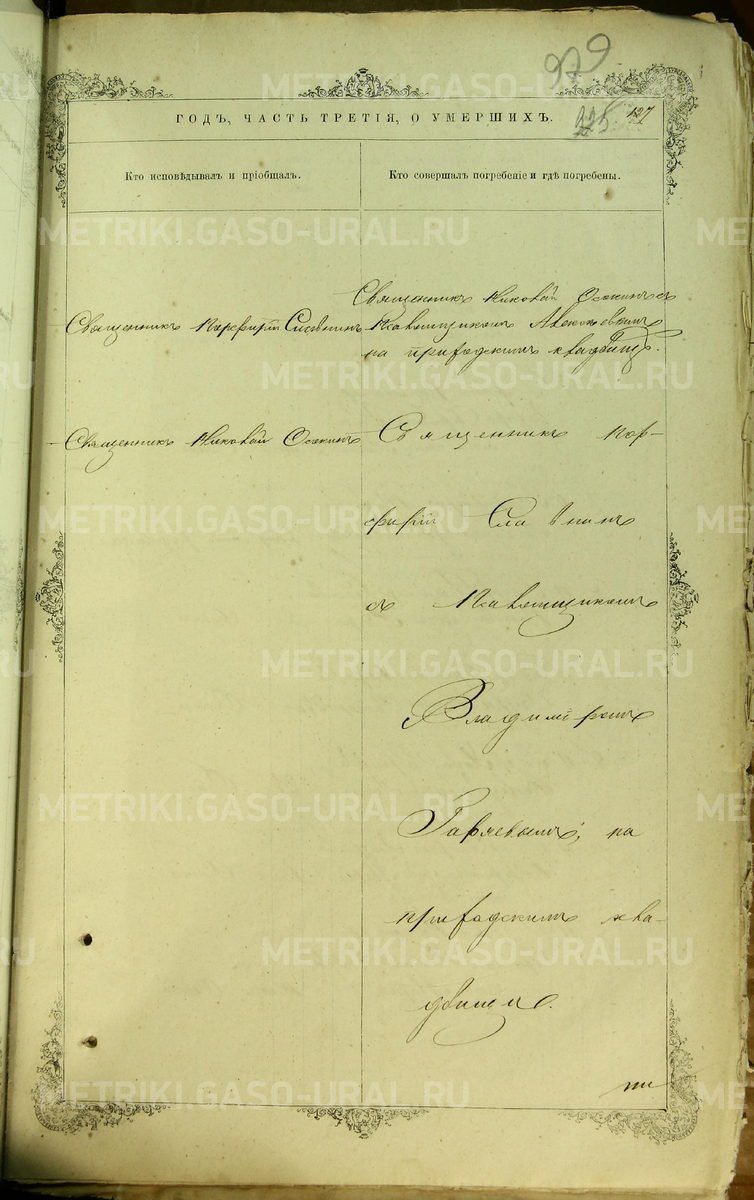 979
225 127
ГОДЪ, ЧАСТЬ ТРЕТІЯ, О УМЕРШИХЪ.
Кто исповѣдывалъ и пріобщалъ.
Кто совершалъ погребеніе и гдѣ погребены.
Священникъ Порфирій Славнинъ
Священникъ Николай Осокинъ съ
Псаломщикомъ
на приходскомъ кладбищѣ.
Священникъ Николай Осокинъ
Священникъ Пор-
фирій Славнинъ
съ Псаломщикомъ
Владиміромъ
на
приходскомъ кла-
дбищѣ.
METRIKI.GASO-URAL.RU